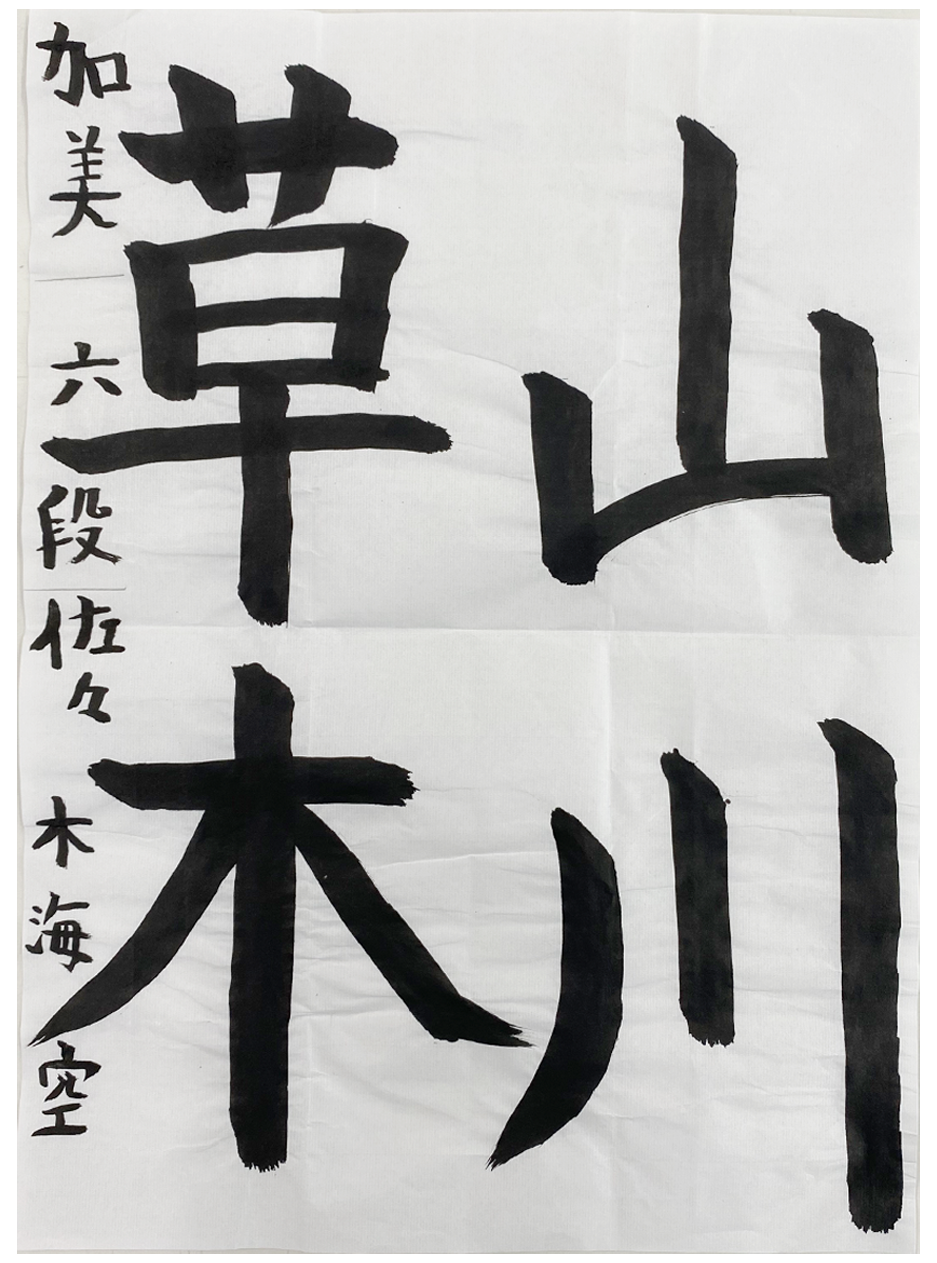 山川
草木
加美 六段 佐々木海空